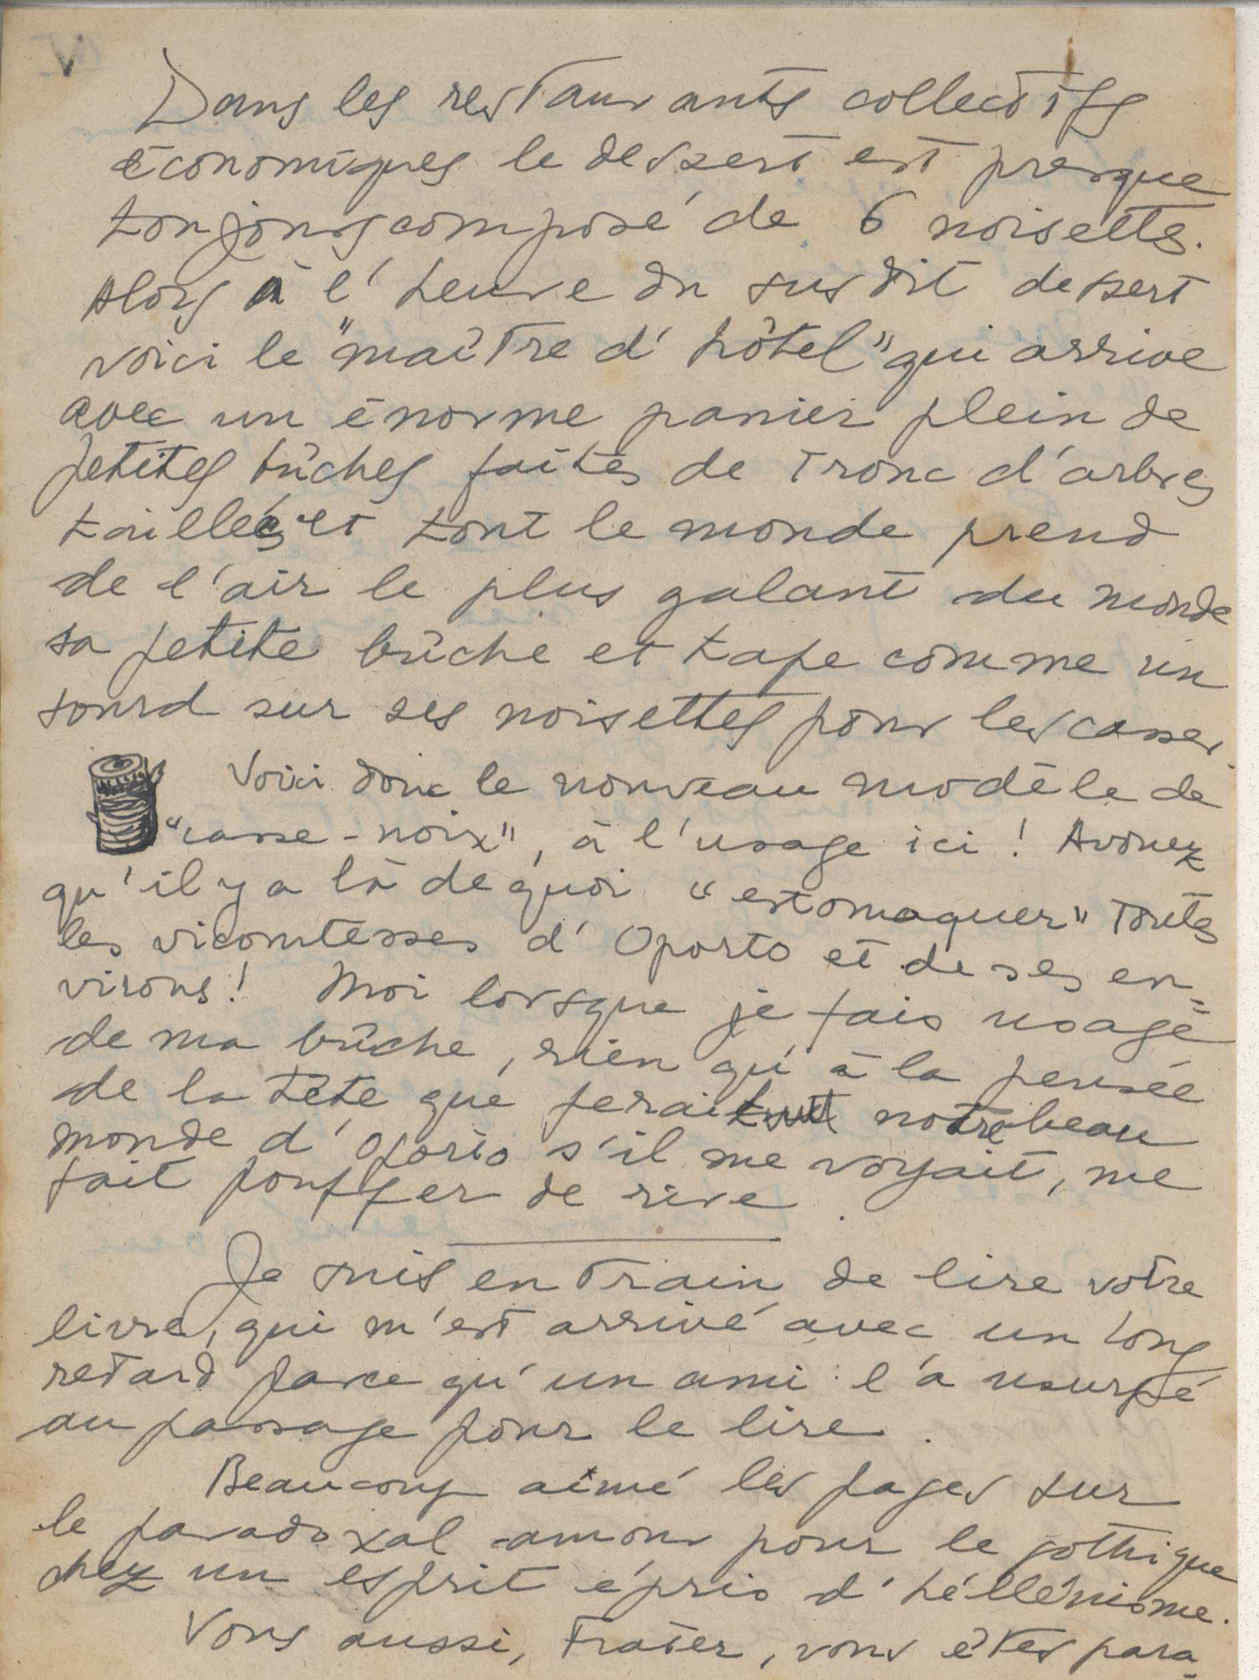 V
Dans les restaurants collectifs
économiques le dessert est presque
toujours composé de 6 noisettes.
Alors à l'heure du susdit dessert
voici le "maître d'hôtel" qui arrive
avec un énorme panier plein de
petites bûches faites de tronc d'arbres
taillées et tout le monde prend
de l'air le plus galant du monde
sa petite bûche et tape comme un
sourd sur ses noisettes pour les casser.
Voici donc le nouveau modèle de
"casse-noix", à l'usage ici ! Avouez
qu'il y a là de quoi "estomaquer" toutes
les vicomtesses d'Oporto et de ses en=
virons! Moi lorsque je fais usage
de ma bûche, rien qu'à la pensée
de la tête que ferait tout notre beau
monde d'Oporto s'il me voyait, me
fait pouffer de rire.
Je suis en train de lire votre
livre, qui m'est arrivé avec un long
retard parce qu'un ami l'a usurpé
au passage pour le lire.
Beaucoup aimé les pages sur
le paradoxal amour pour le gothique
chez un esprit épris d'héllénisme.
Vous aussi, Frater, vous êtes para